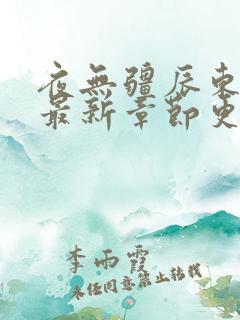 夜無疆辰東
最新章節更
李雨霞
未经同意禁止转载